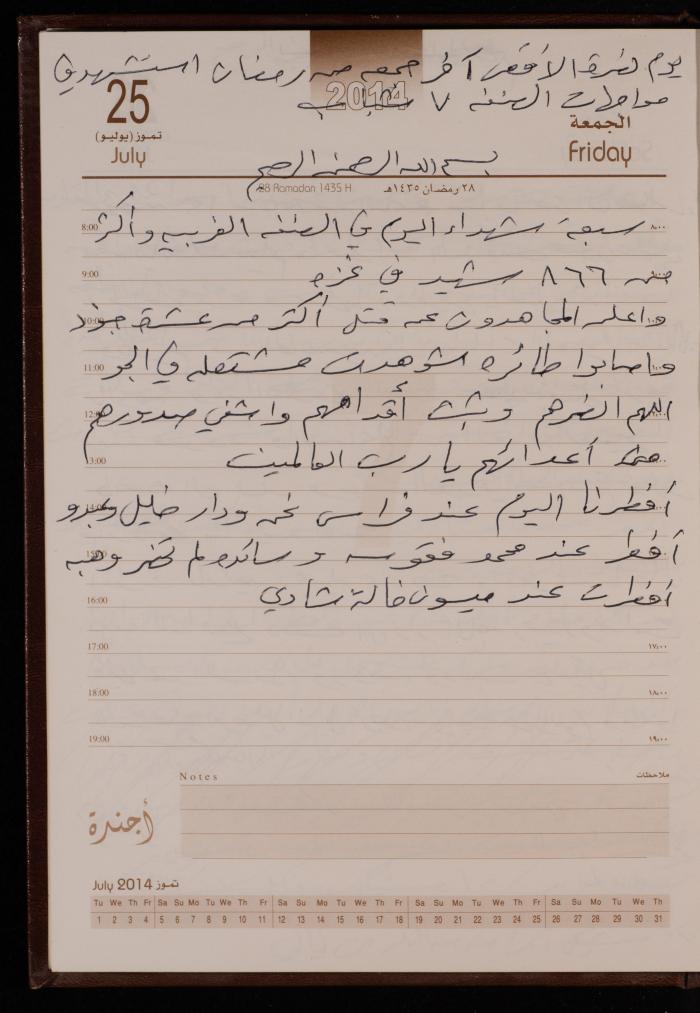 يوم نصرة الأقصى آخر جمعه من رمضان استشهد في
مواجهات الضفه ٧ شباب
2014
25
تموز (يوليو)
July
الجمعة
Friday
بسم الله الرحمن الرحيم
28 Ramadan 1435 H
٢٨ رمضان ١٤٣٥هـ
8:00 سبعة شهداء اليوم في الضفه الغربيه وأكثر ٨:٠٠
9:00 من ٨٦٦ شهيد في غزه
10:00 واعلن المجاهدون عن قتل أكثر من عشرة جنود
11:00 واصابوا طائره شوهدت مشتعله في الجو
12:00 اللهم انصرهم وثبت أقدامهم واشفي صدورهم
13:00 من أعدائهم يا رب العالمين
14:00 أفطرنا اليوم عند فراس نحن ودار خليل وعبدو
15:00 أفطر عند محمد فقوسه وسائده لم تحضر وهبه
16:00 أفطرت عند ميسون خالة شادي
17:00 ١٧:٠٠
18:00 ١٨:٠٠
19:00 ١٩:٠٠
Notes ملاحظات
أجندة
July 2014 تموز
Tu We Th Fr Sa Su Mo Tu We Th Fr Sa Su Mo Tu We Th Fr Sa Su Mo Tu We Th Fr Sa Su Mo Tu We Th
1 2 3 4 5 6 7 8 9 10 11 12 13 14 15 16 17 18 19 20 21 22 23 24 25 26 27 28 29 30 31